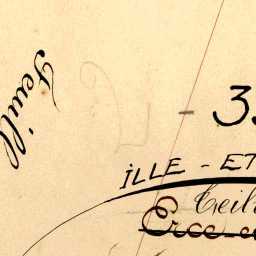 Feuill
- 3
ILLE - ET
Teil
Erce-e